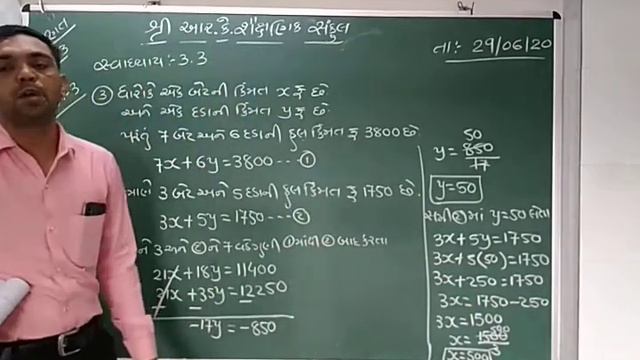 શ્રી આર.કે.શૈક્ષણિક સંકુલ
તા:- 29/06/20
સ્વાધ્યાય:- 3.3
③ ધારોકે એક બેટની કિંમત x રૂ છે
અને એક દડાની કિંમત y રૂ છે.
પરંતુ 7 બેટ અને 6 દડાની કુલ કિંમત રૂ 3800 છે
7x+6y=3800 --- ①
3 બેટ અને 5 દડાની કુલ કિંમત રૂ 1750 છે.
3x+5y=1750 ---- ②
3 અને ② ને 7 વડે ગુણી ① માંથી ② બાદ કરતા
21x+18y=11400
21x+35y=12250
-17y=-850
50
y=850
17
y=50
માં y=50 લેતા
3x+5y=1750
3x+5(50)=1750
3x+250=1750
3x=1750-250
3x=1500
500
x=1500
3
x=500